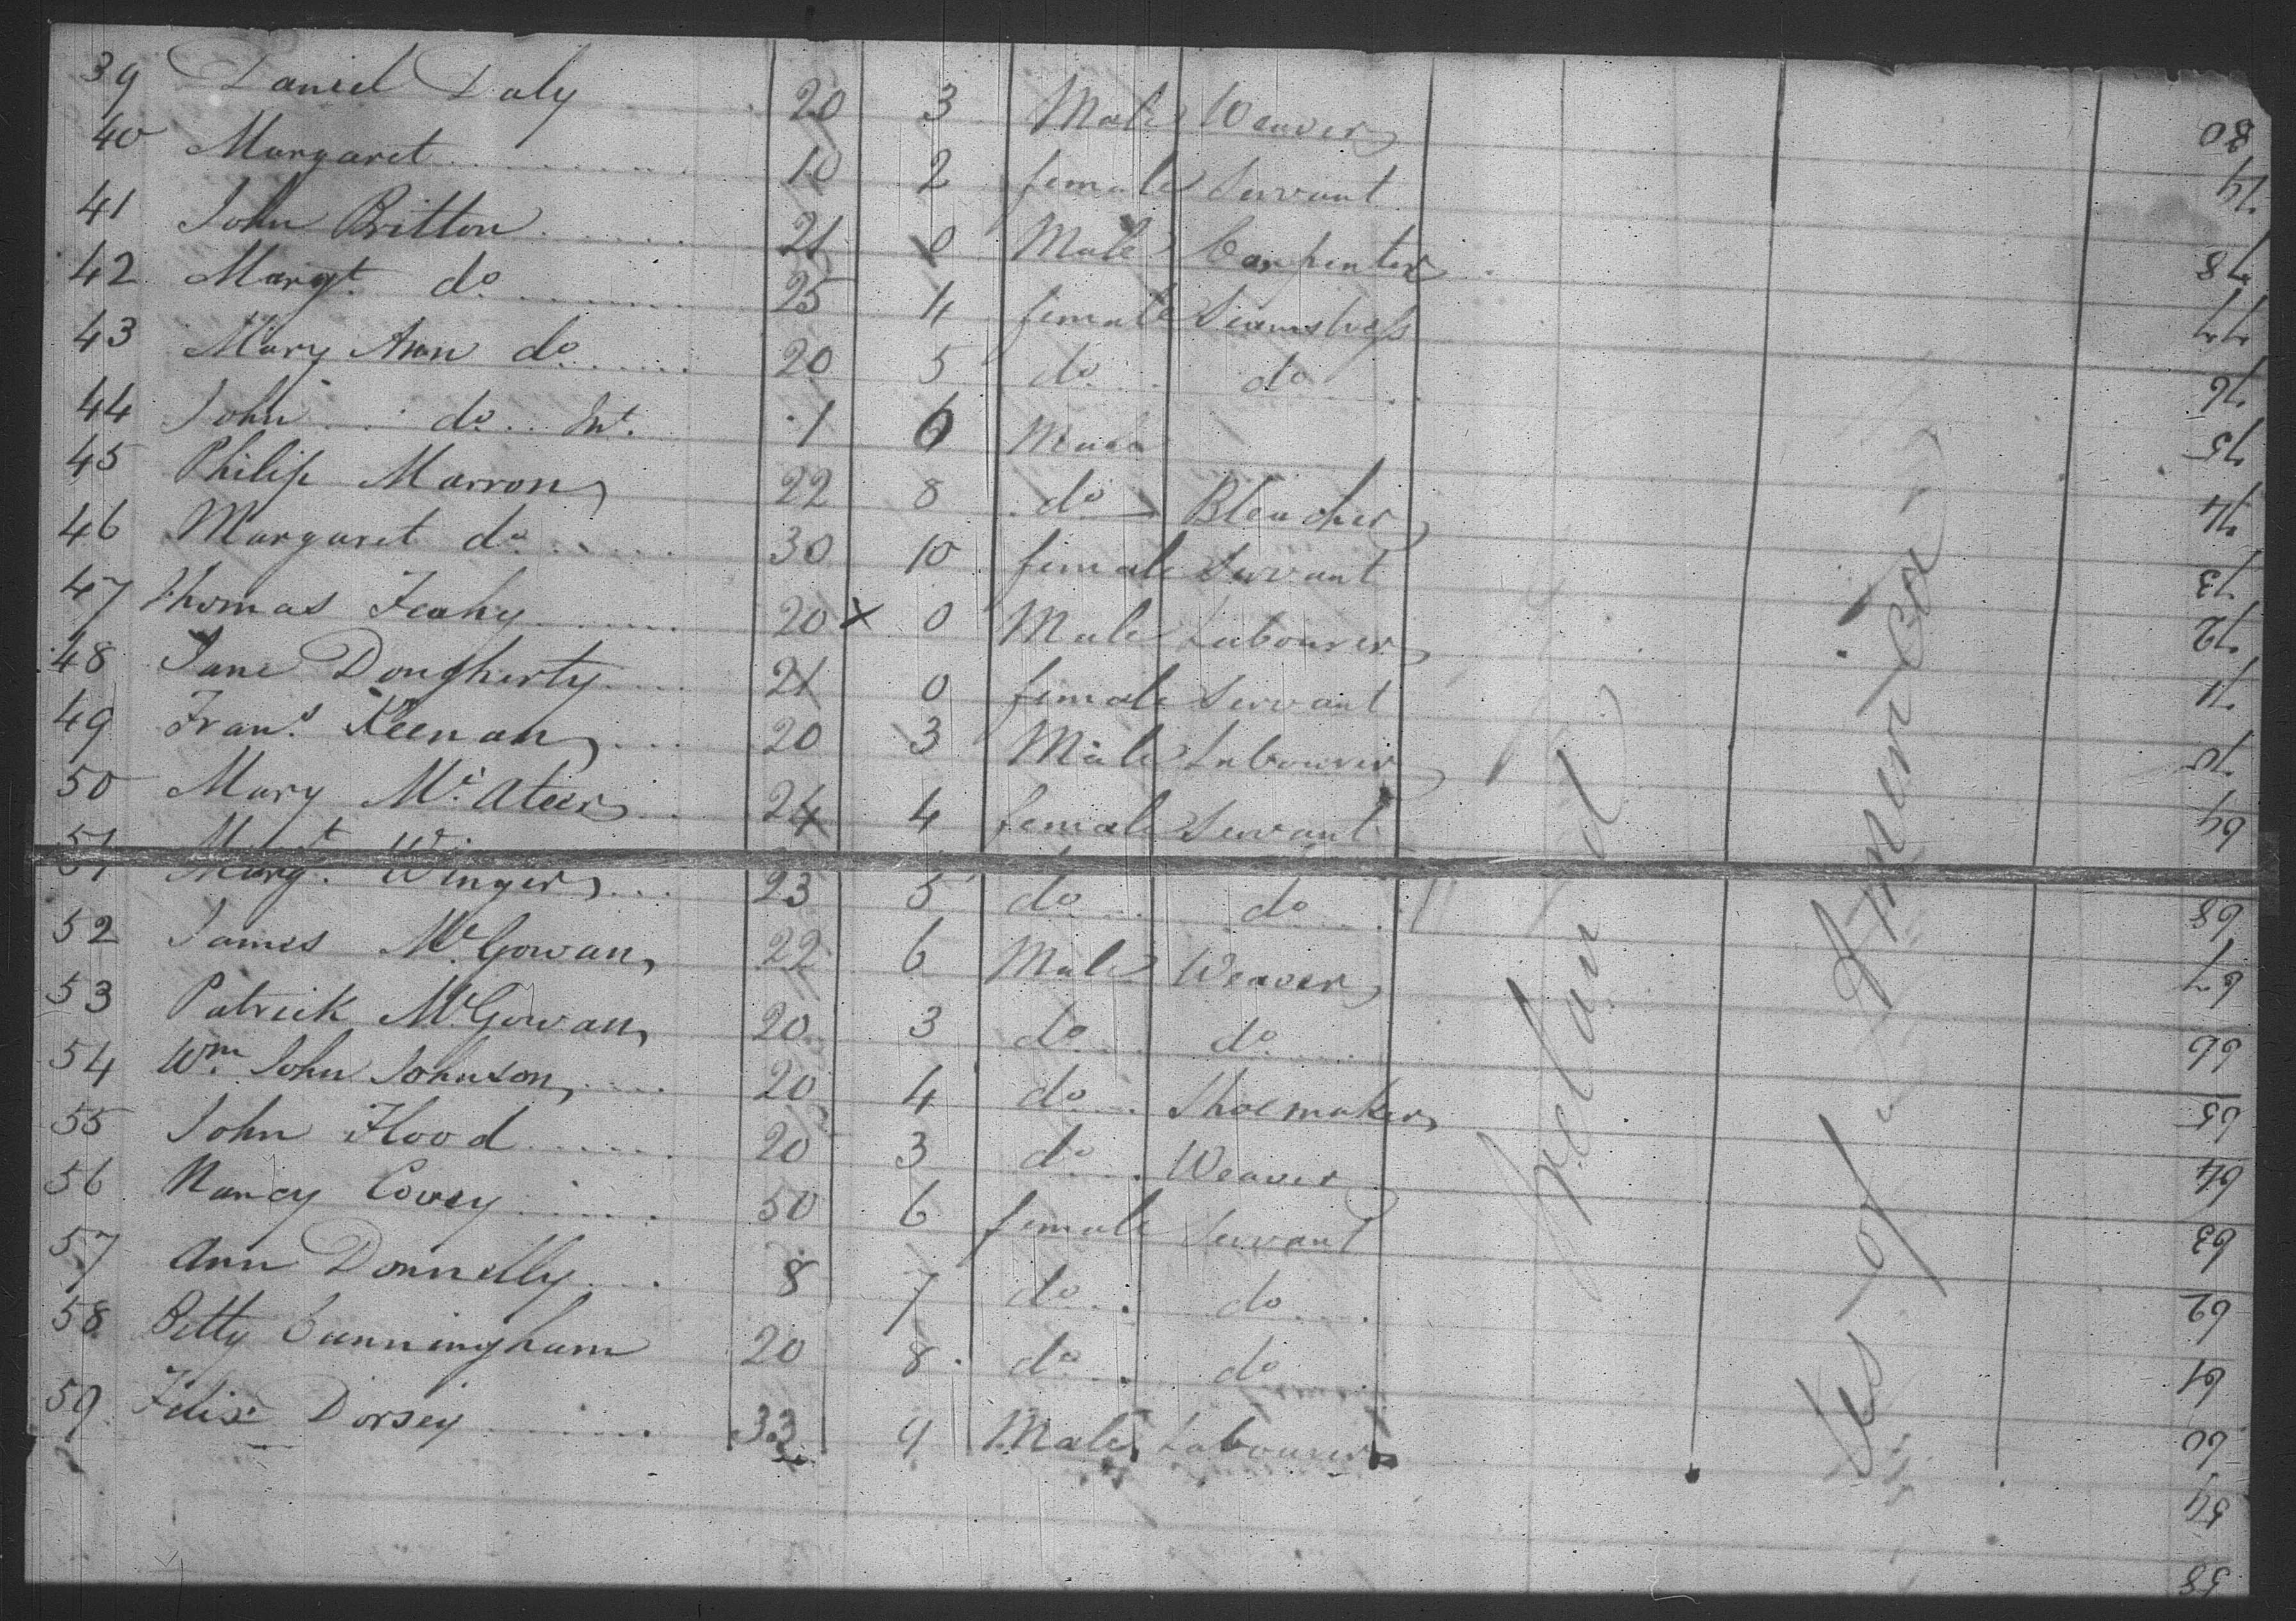 39 Daniel Daly 20 3 Male Weaver
40 Margaret 10 2 female Servant
41 John Britton 21 0 Male Carpenter
42 Margt. do 25 4 female Seamstress
43 Mary Ann do 20 5 do do
44 John do Int. 1 6 Male
45 Philip Marron 22 8 do Bleacher
46 Margaret do 30 10 female Servant
47 Thomas Feahy 20 x 0 Male Labourer
48 Jane Dougherty 21 0 female Servant
49 Frans. Keenan 20 3 Male Labourer
50 Mary Mc. Ateer 24 4 female Servant
51 Margt. Winger 23 5 do do
52 James Mc. Gowan 22 6 Male Weaver
53 Patrick Mc. Gowan 20 3 do do
54 Wm. John Johnson 20 4 do Shoemaker
55 John Flood 20 3 do Weaver
56 Nancy Covey 50 6 female Servant
57 Ann Donnelly 8 7 do do
58 Betty Cunningham 20 8 do do
59 Felix Dorsey 33 9 Male Labourer
Ireland
Us of America
80
79
78
77
76
75
74
73
72
71
70
69
68
67
66
65
64
63
62
61
60
59
58